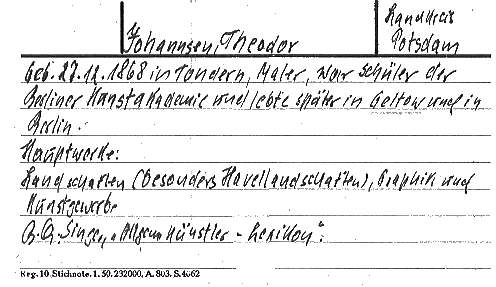 Johannsen, Theodor
Landkreis
Potsdam
Geb. 27.12.1868 in Tondern, Maler, war Schüler der
Berliner Kunstakademie und lebte später in Geltow und in
Berlin.
Hauptwerke:
Landschaften (besonders Havellandschaften), Graphik und
Kunstgewerbe
Singer, "Allgem Künstler-Lexikon".
Reg. 10 Stichnote. 1. 50. 232000, A. 803. S. 4662